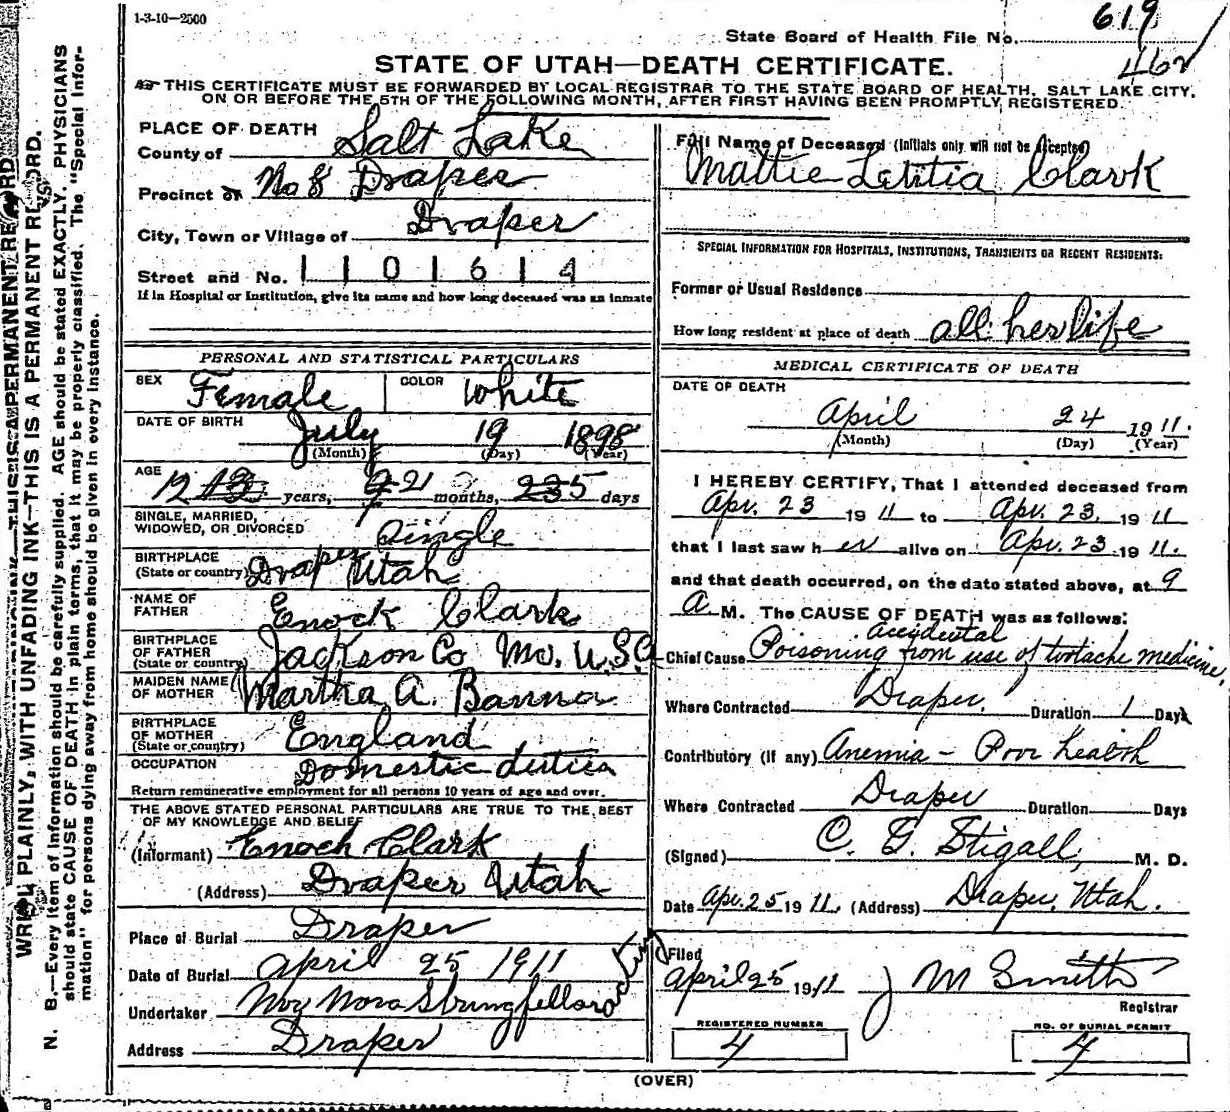 1-3-10—2500
619
State Board of Health File No.
462
STATE OF UTAH—DEATH CERTIFICATE.
THIS CERTIFICATE MUST BE FORWARDED BY LOCAL REGISTRAR TO THE STATE BOARD OF HEALTH, SALT LAKE CITY,
ON OR BEFORE THE 5TH OF THE FOLLOWING MONTH, AFTER FIRST HAVING BEEN PROMPTLY REGISTERED.
WRITE PLAINLY, WITH UNFADING INK—THIS IS A PERMANENT RECORD.
N. B.—Every item of information should be carefully supplied. AGE should be stated EXACTLY. PHYSICIANS
should state CAUSE OF DEATH in plain terms, that it may be properly classified. The "Special Infor-
mation" for persons dying away from home should be given in every instance.
PLACE OF DEATH
County of Salt Lake
Precinct or No 8 Draper
City, Town or Village of Draper
Street and No. 1 1 0 1 6 1 4
If in Hospital or Institution, give its name and how long deceased was an inmate
PERSONAL AND STATISTICAL PARTICULARS
SEX Female COLOR White
DATE OF BIRTH July 19 1898
(Month) (Day) (Year)
AGE 12 years, 9 months, 5 days
SINGLE, MARRIED,
WIDOWED, OR DIVORCED Single
BIRTHPLACE
(State or country) Draper Utah
NAME OF
FATHER Enock Clark
BIRTHPLACE
OF FATHER
(State or country) Jackson Co Mo. U.S.
MAIDEN NAME
OF MOTHER Martha A.
BIRTHPLACE
OF MOTHER
(State or country) England
OCCUPATION Domestic duties
Return remunerative employment for all persons 10 years of age and over.
THE ABOVE STATED PERSONAL PARTICULARS ARE TRUE TO THE BEST
OF MY KNOWLEDGE AND BELIEF
(Informant) Enoch Clark
(Address) Draper Utah
Place of Burial Draper
Date of Burial April 25 1911
Undertaker Nora Stringfellow
Address Draper
Full Name of Deceased (Initials only will not be accepted)
Mattie Letitia Clark
SPECIAL INFORMATION FOR HOSPITALS, INSTITUTIONS, TRANSIENTS OR RECENT RESIDENTS:
Former or Usual Residence
How long resident at place of death all her life
MEDICAL CERTIFICATE OF DEATH
DATE OF DEATH
April 24 1911.
(Month) (Day) (Year)
I HEREBY CERTIFY, That I attended deceased from
Apr. 23 1911 to Apr. 23. 1911
that I last saw her alive on Apr. 23 1911.
and that death occurred, on the date stated above, at 9
A M. The CAUSE OF DEATH was as follows:
accidental
Chief Cause Poisoning from use of tootache medicine.
Where Contracted Draper. Duration 1 Days
Contributory (if any) Anemia - Poor health
Where Contracted Draper Duration Days
(Signed) C. G. Stigall, M. D.
Date Apr. 25 1911. (Address) Draper, Utah.
Filed
April 25 1911 J M Smith
Registrar
REGISTERED NUMBER
4
NO. OF BURIAL PERMIT
4
(OVER)